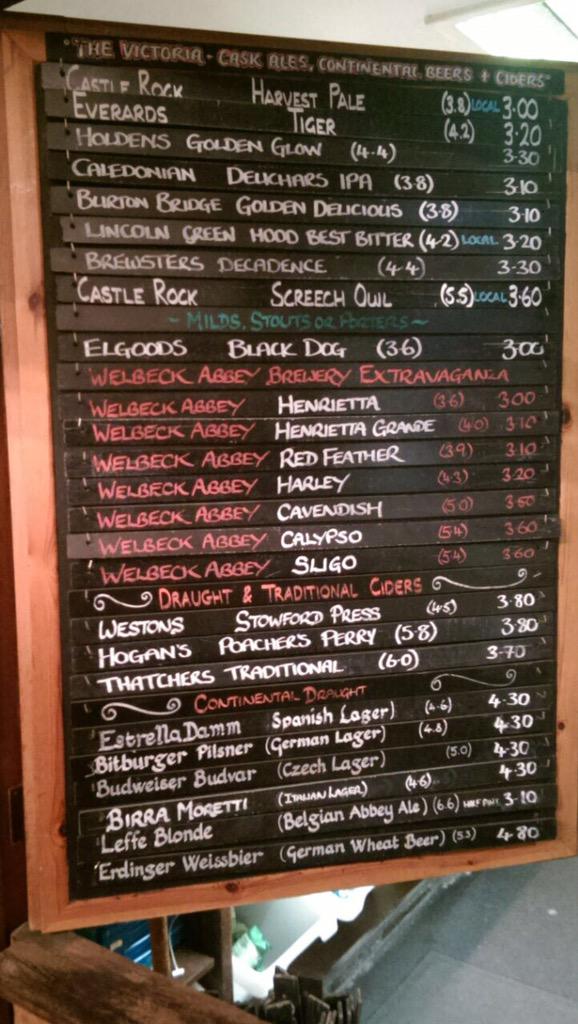 "THE VICTORIA - CASK ALES, CONTINENTAL BEERS & CIDERS"
CASTLE ROCK HARVEST PALE (3.8) LOCAL 3.00
EVERARDS TIGER (4.2) 3.20
HOLDENS GOLDEN GLOW (4.4) 3.30
CALEDONIAN DEUCHARS IPA (3.8) 3.10
BURTON BRIDGE GOLDEN DELICIOUS (3.8) 3.10
LINCOLN GREEN HOOD BEST BITTER (4.2) LOCAL 3.20
BREWSTERS DECADENCE (4.4) 3.30
CASTLE ROCK SCREECH OWL (5.5) LOCAL 3.60
~ MILDS, STOUTS OR PORTERS ~
ELGOODS BLACK DOG (3.6) 3.00
WELBECK ABBEY BREWERY EXTRAVAGANZA
WELBECK ABBEY HENRIETTA (3.6) 3.00
WELBECK ABBEY HENRIETTA GRANDE (4.0) 3.10
WELBECK ABBEY RED FEATHER (3.9) 3.10
WELBECK ABBEY HARLEY (4.3) 3.20
WELBECK ABBEY CAVENDISH (5.0) 3.50
WELBECK ABBEY CALYPSO (5.4) 3.60
WELBECK ABBEY SLIGO (5.4) 3.60
DRAUGHT & TRADITIONAL CIDERS
WESTONS STOWFORD PRESS (4.5) 3.80
HOGAN'S POACHER'S PERRY (5.8) 3.80
THATCHERS TRADITIONAL (6.0) 3.70
CONTINENTAL DRAUGHT
Estrella Damm Spanish Lager) (4.6) 4.30
Bitburger Pilsner (German Lager) (4.8) 4.30
Budweiser Budvar (Czech Lager) (5.0) 4.30
BIRRA MORETTI (ITALIAN LAGER) (4.6) 4.30
Leffe Blonde (Belgian Abbey Ale) (6.6) HALF PINT 3.10
Erdinger Weissbier (German Wheat Beer) (5.3) 4.80